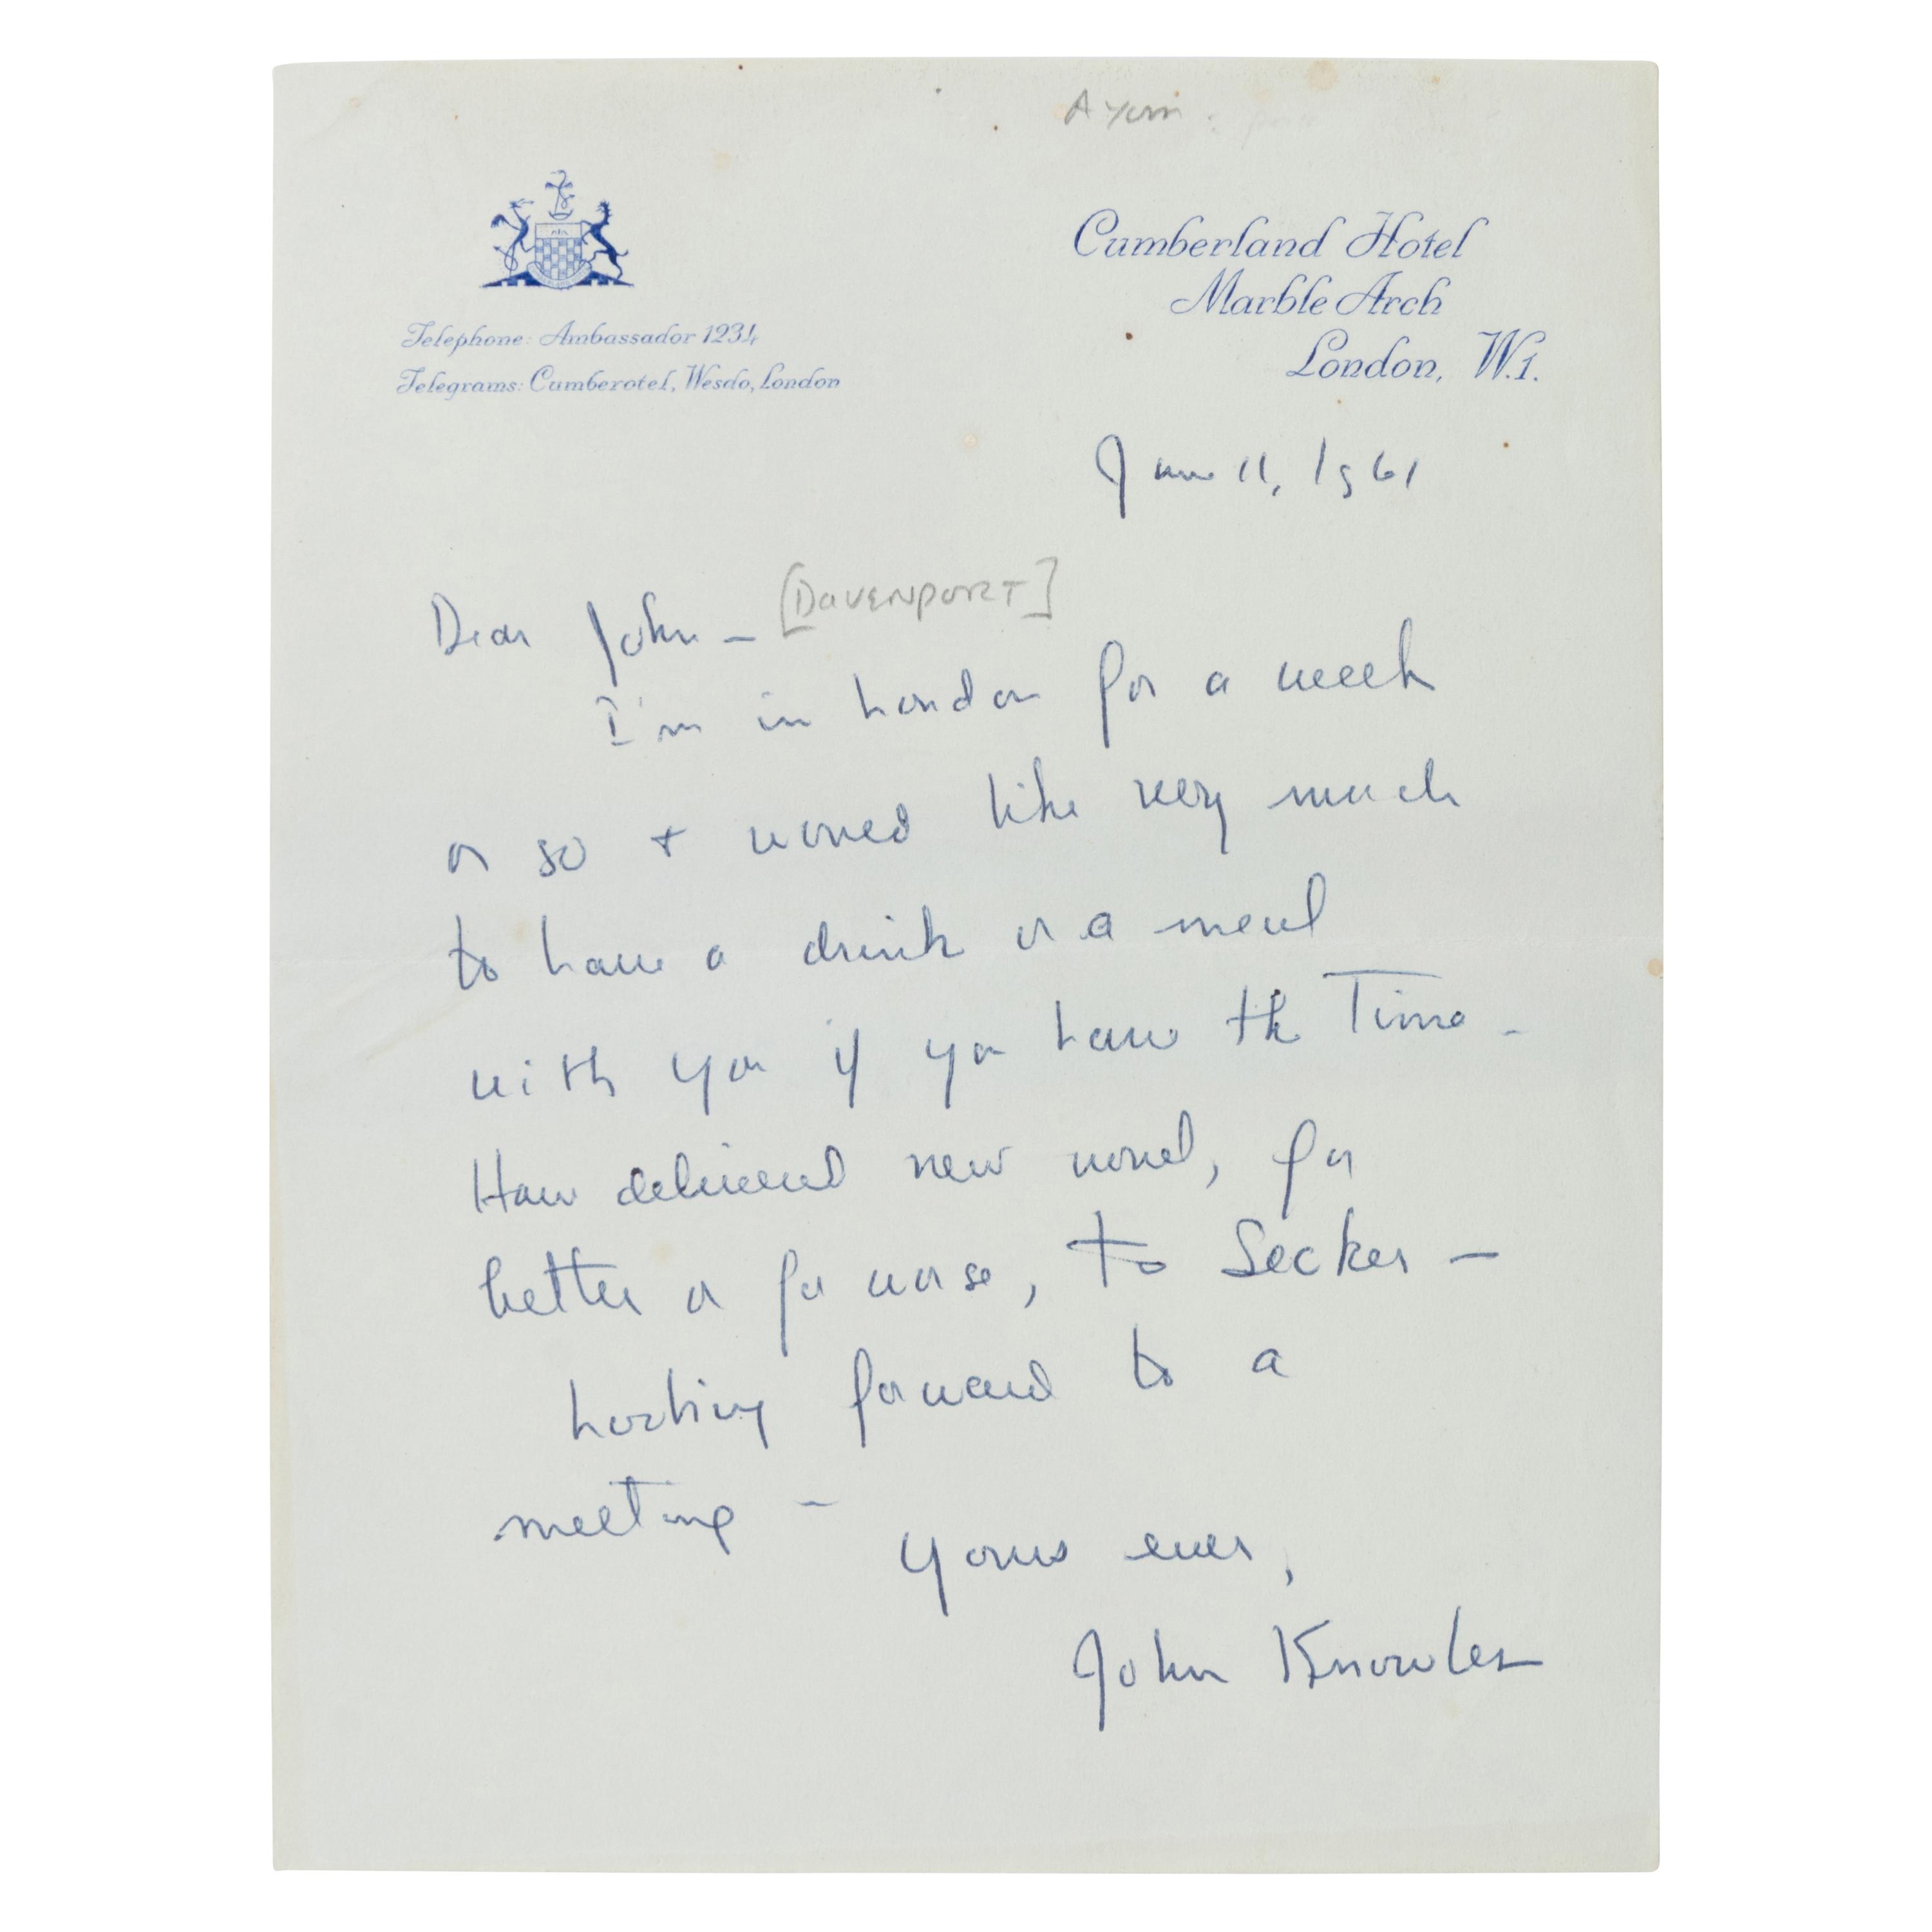 Telephone: Ambassador 1234
Telegrams: Cumberotel, Wesdo, London
Cumberland Hotel
Marble Arch
London, W.1.
June 11, 1961
Dear John — [DAVENPORT]
I'm in London for a week
or so + would like very much
to have a drink or a meal
with you if you have the time –
Have delivered new novel, for
better or for worse, to Secker –
Looking forward to a
meeting –
Yours ever,
John Knowles